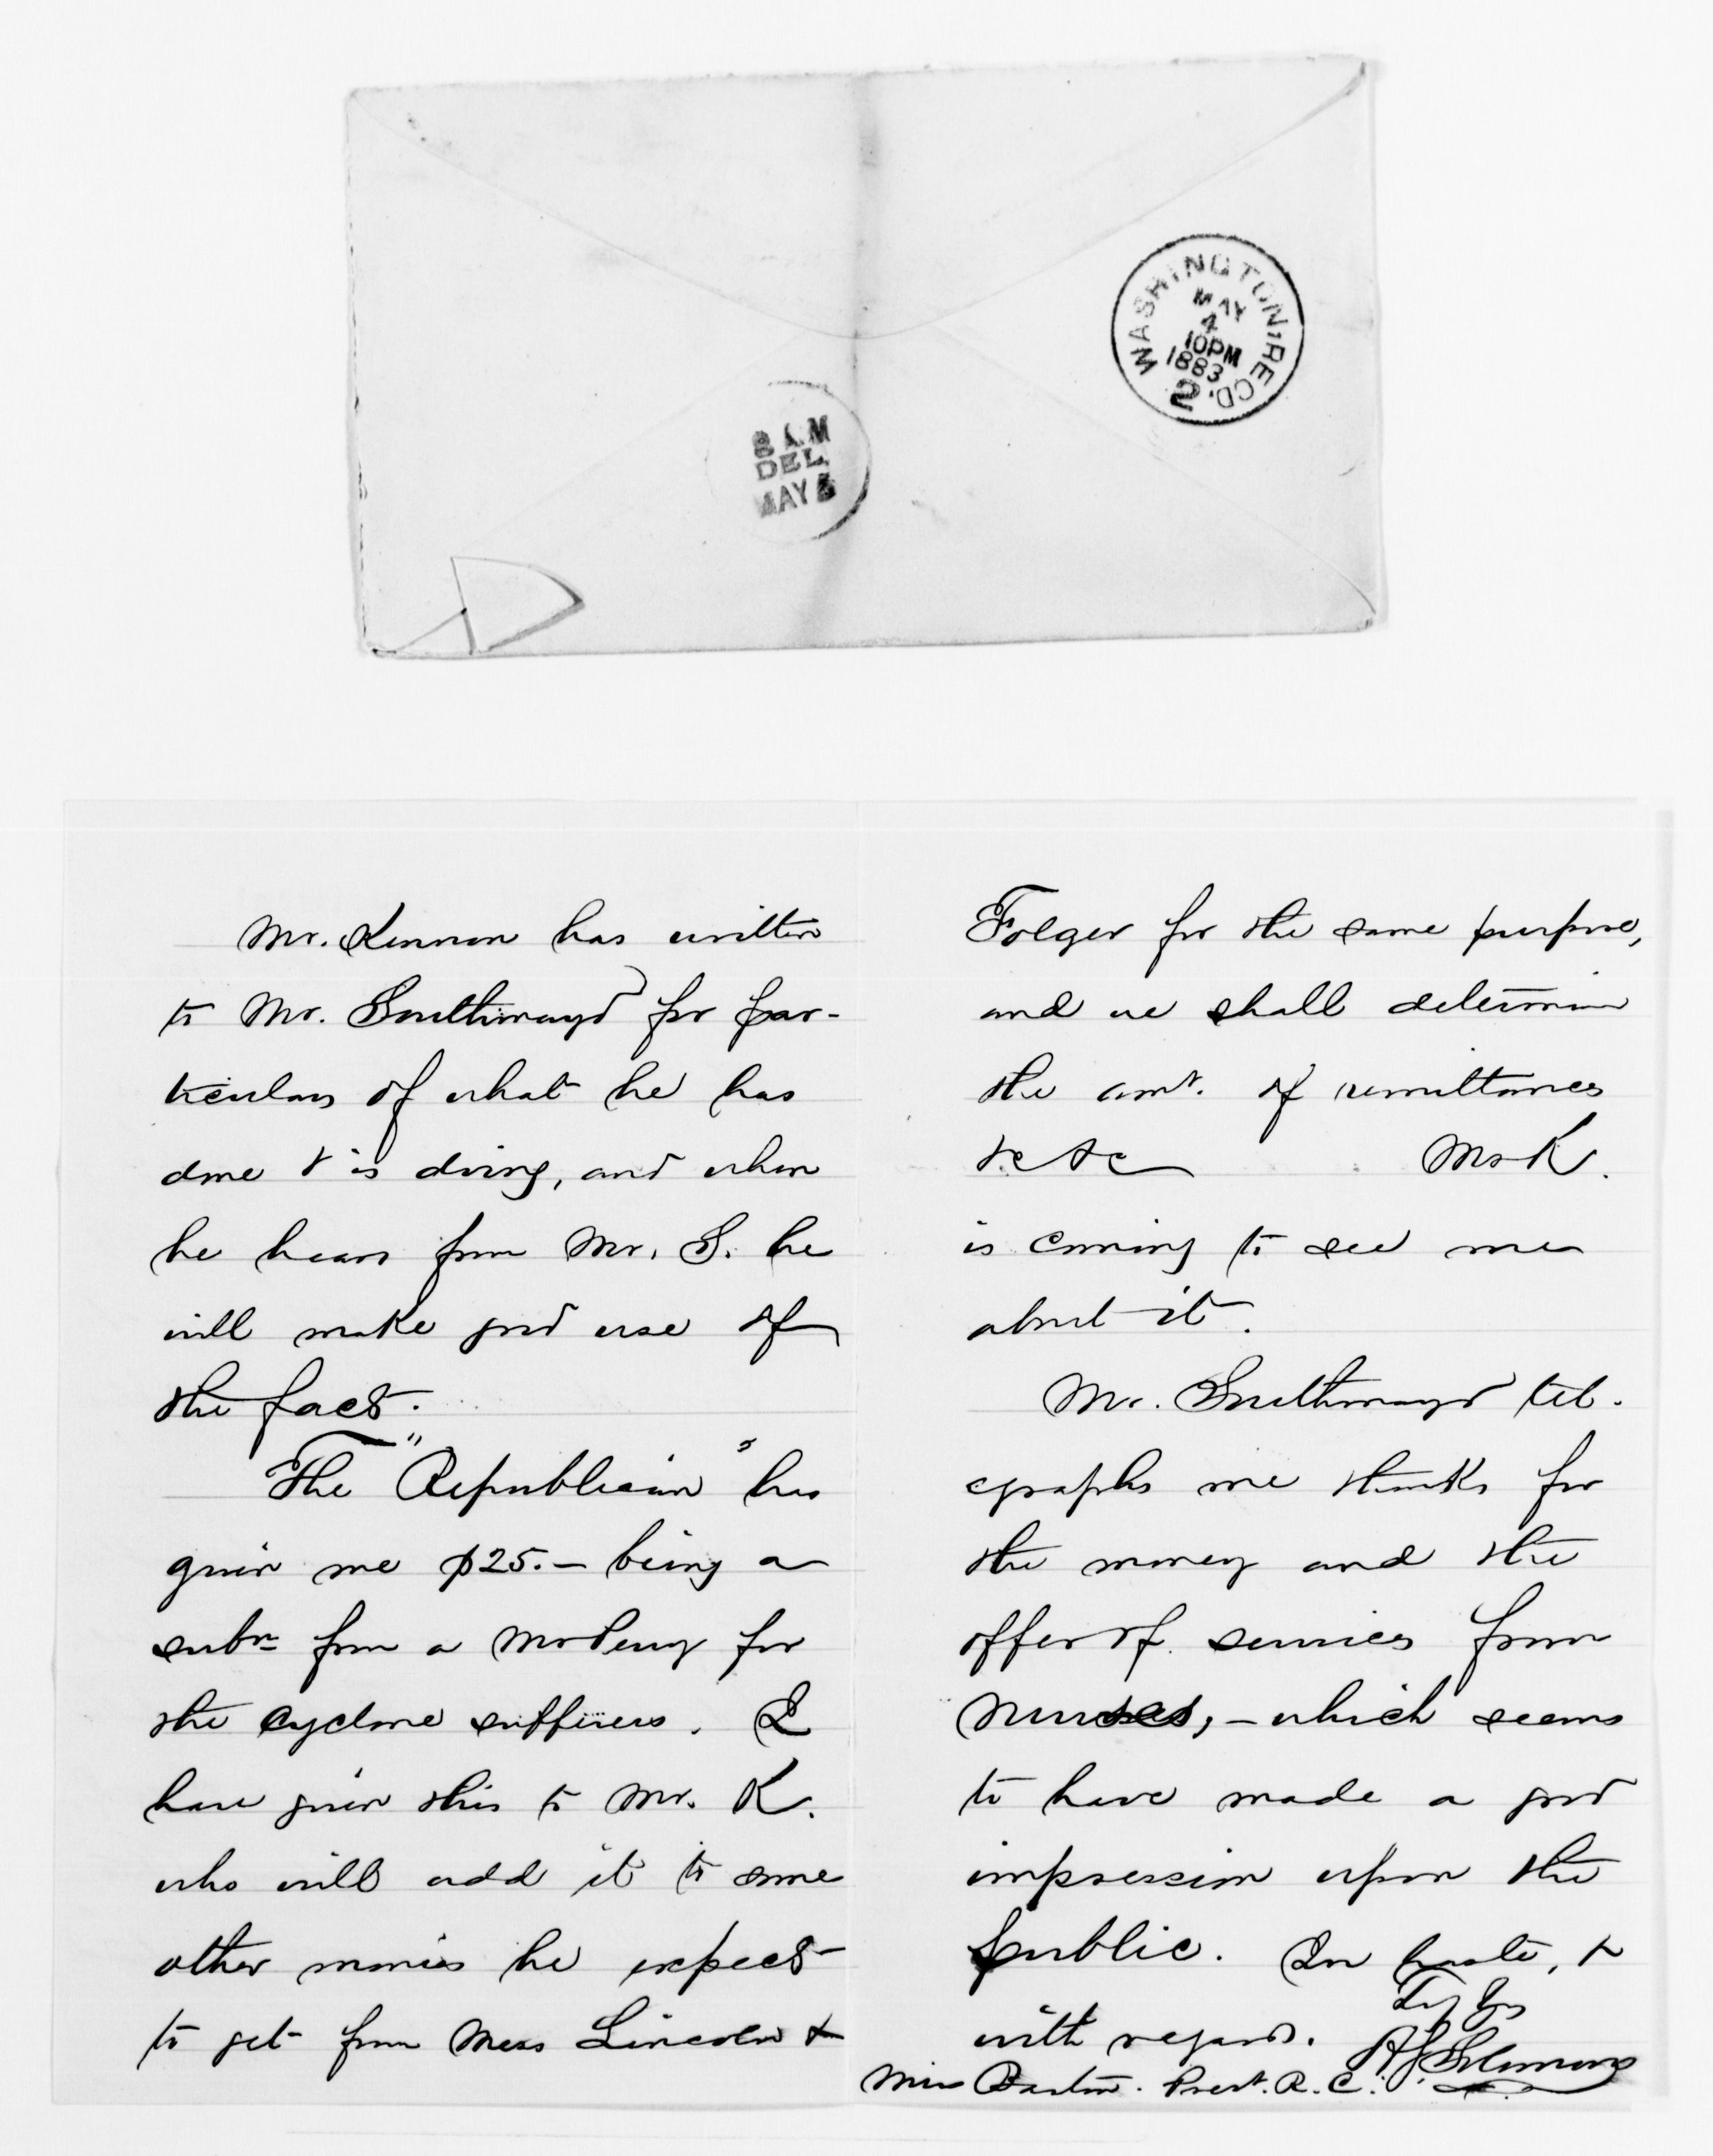 WASHINGTON, RECD.
MAY
4
10PM
1883
2
8 AM
DEL.
MAY 5
Mr. Kennon has written
to Mr. Southmayd for par-
ticulars of what he has
done & is doing, and when
he hears from Mr. S. he
will make good use of
the fact.
The "Republican" has
given me $25.— being a
subn from a Mr Perry for
the cyclone sufferers. I
have given this to Mr. K.
who will add it to some
other monies he expects
to get from Mess Lincoln &
Folger for the same purpose,
and we shall determin
the amt. of remittances
&c &c Mr K.
is coming to see me
about it.
Mr. Southmayd tel.
egraphs me thanks for
the money and the
offer of services from
nurses, — which seems
to have made a good
impression upon the
public. In haste, &
with regards.
Try Yrs
A S Solomons
Miss Barton. Prest. R. C.